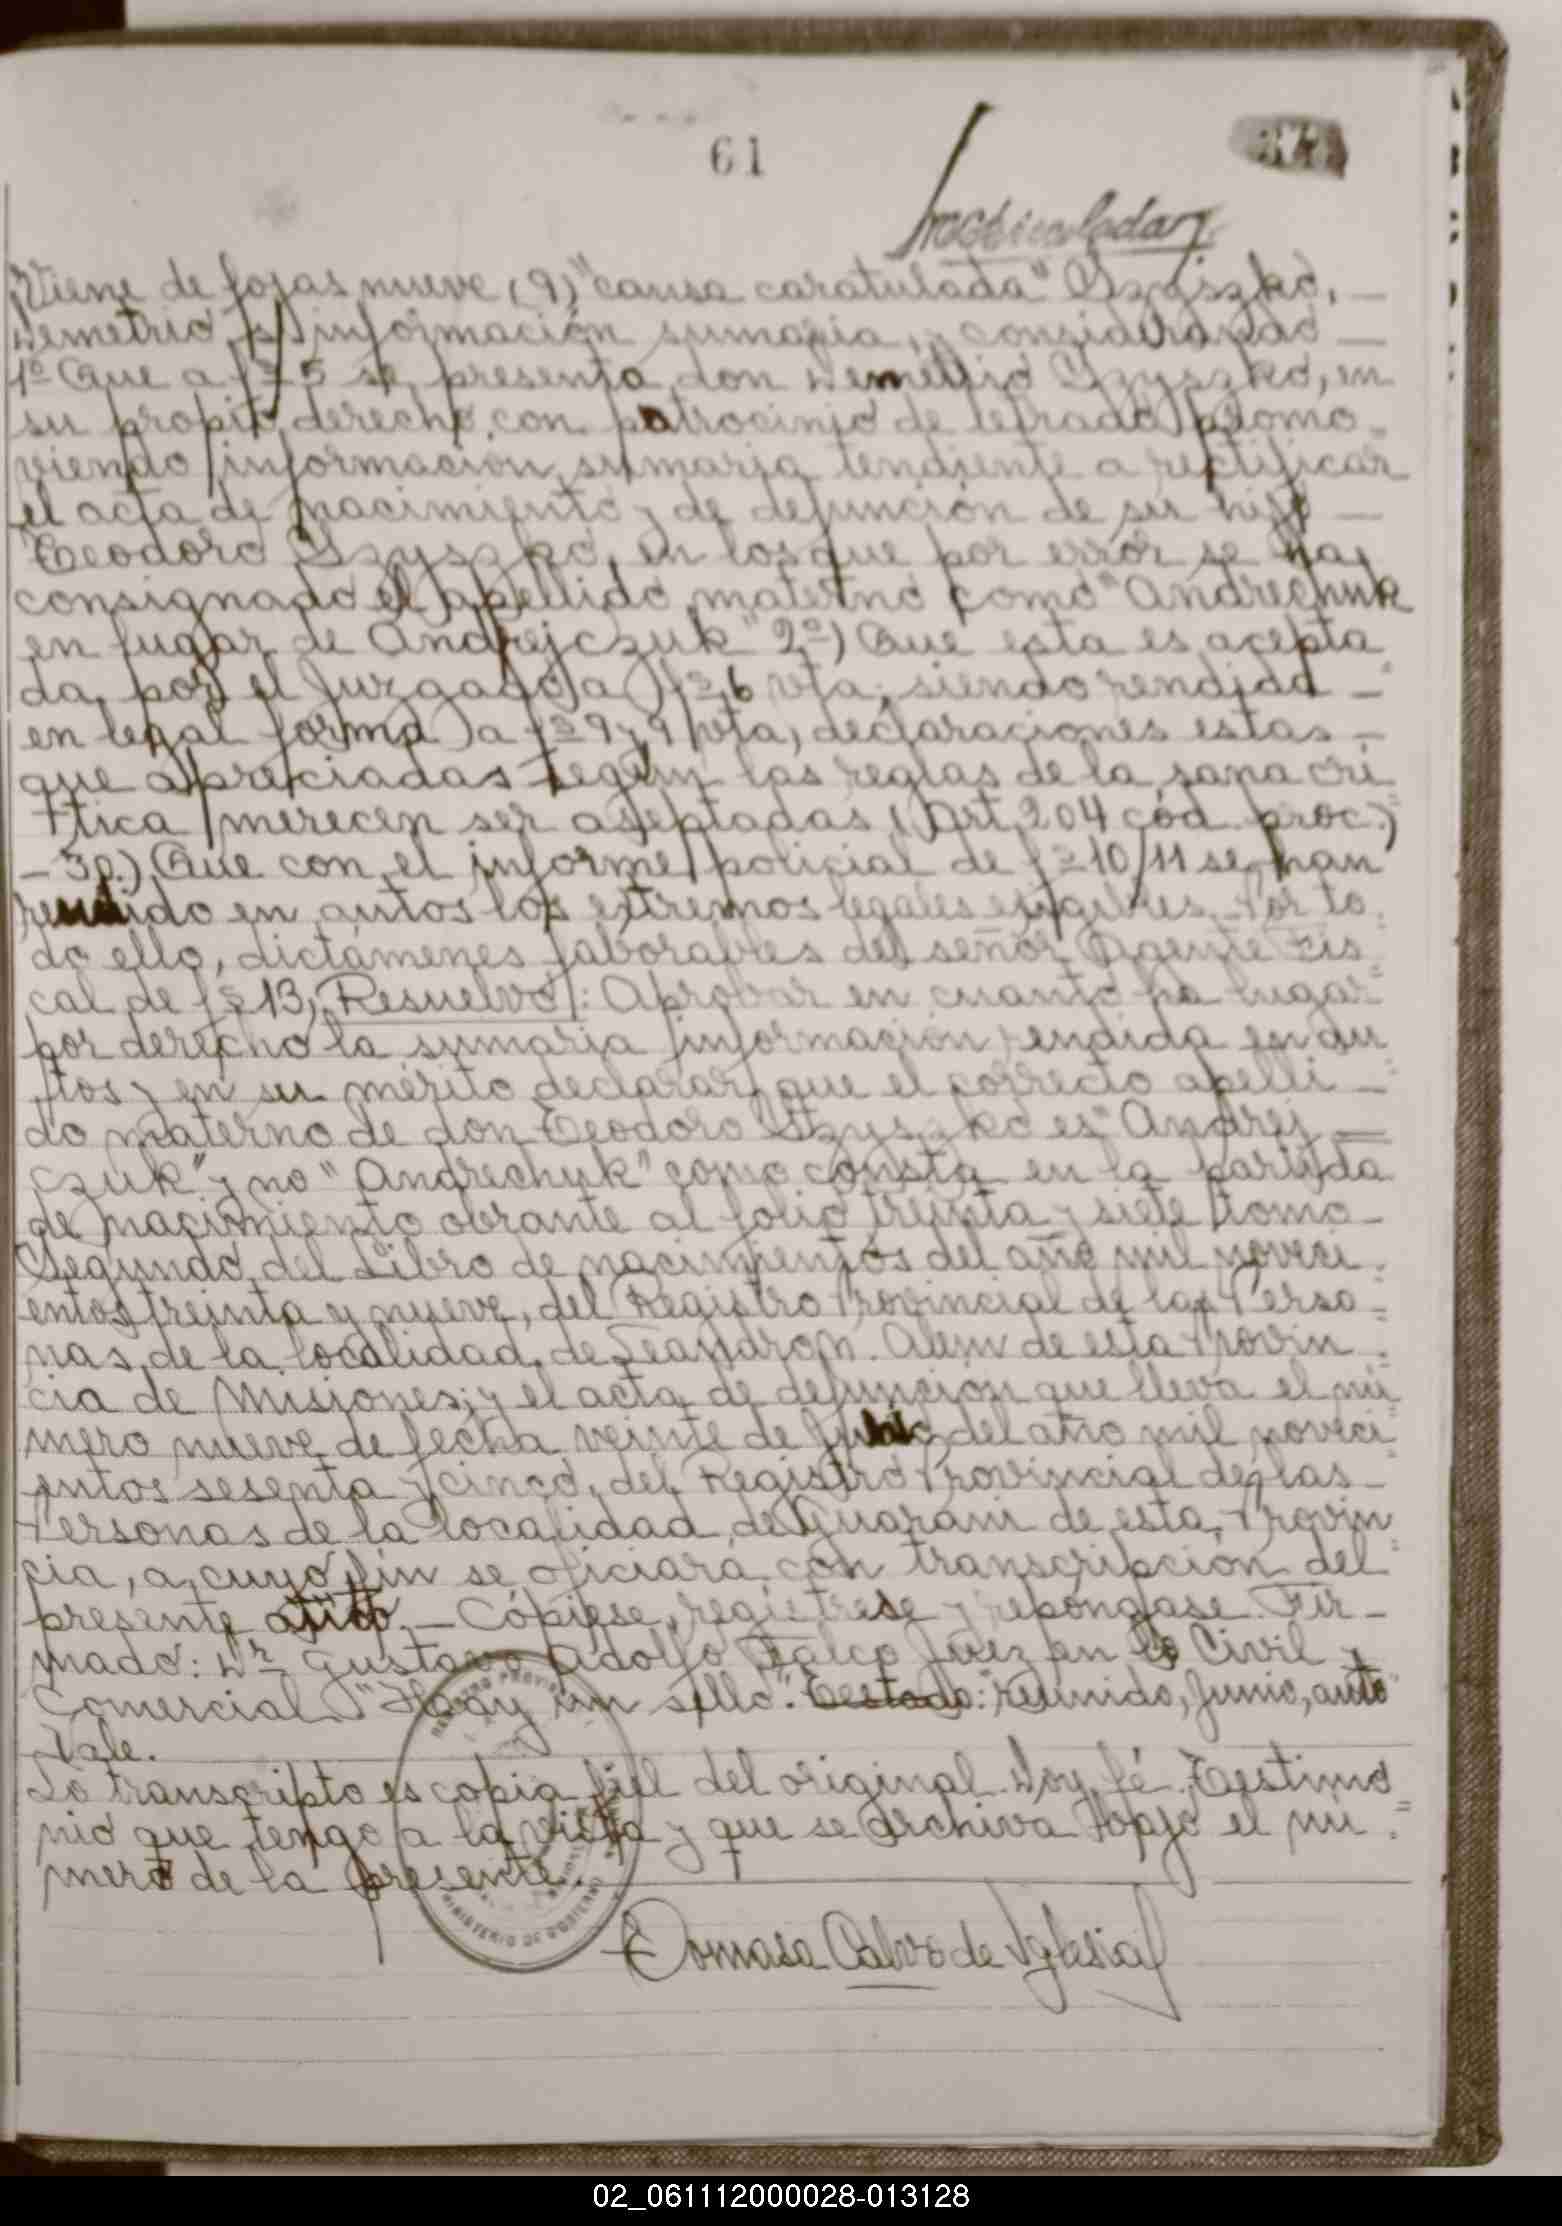 61
Viene de fojas nueve (9) "causa caratulada" Szyszko,
Demetrio s/ información sumaria, y considerando
1º Que a fs 5 se presenta don Demetrio Szyszko, en
su propio derecho, con patrocinio de letrado promo-
viendo información sumaria tendiente a rectificar
el acta de nacimiento y de defunción de su hijo
Teodoro Szyszko, en los que por error se ha
consignado el apellido materno como "Andrechuk
en lugar de Andrejczuk" 2º) Que esta es acepta
da por el Juzgado a fs 6 vta; siendo rendida
en legal forma a fs 9 y 9 vta, declaraciones estas
que apreciadas según las reglas de la sana crí
tica merecen ser aseptadas (Art. 204 cód. proc.)
- 3º.) Que con el informe policial de fs 10/11 se han
reunido en autos los extremos legales exigibles. Por to
do ello, dictámenes faborables del señor Agente Fis
cal de fs 13, Resuelvo: Aprobar en cuanto ha lugar
por derecho la sumaria información rendida en au
tos y en su mérito declarar que el correcto apelli-
do materno de don Teodoro Szyszko es "Andrej
czuk" y no "Andrechuk" como consta en la partida
de nacimiento obrante al folio treinta y siete tomo
Segundo del Libro de nacimientos del año mil noveci
entos treinta y nueve, del Registro Provincial de las Perso
nas, de la localidad de Leandro N. Alem de esta Provin
cia de Misiones; y el acta de defunción que lleva el nú
mero nueve de fecha veinte de Junio del año mil noveci
entos sesenta y cinco, del Registro Provincial de las
Personas de la localidad de Guaraní de esta Provin
cia, a cuyo fin se oficiará con transcripción del
presente auto. — Cópiese, regístrese y repóngase. Fir-
mado: Dr Gustavo Adolfo Falco Juez en lo Civil y
Comercial "Hay un sello". Testado: "reunido, Junio, auto"
Vale.
Lo transcripto es copia fiel del original. Doy fé. Testimo
nio que tengo a la vista y que se archiva bajo el nú
mero de la presente.
MINISTERIO DE GOBIERNO
Tomasa Calvo de Iglesia
02_061112000028-013128